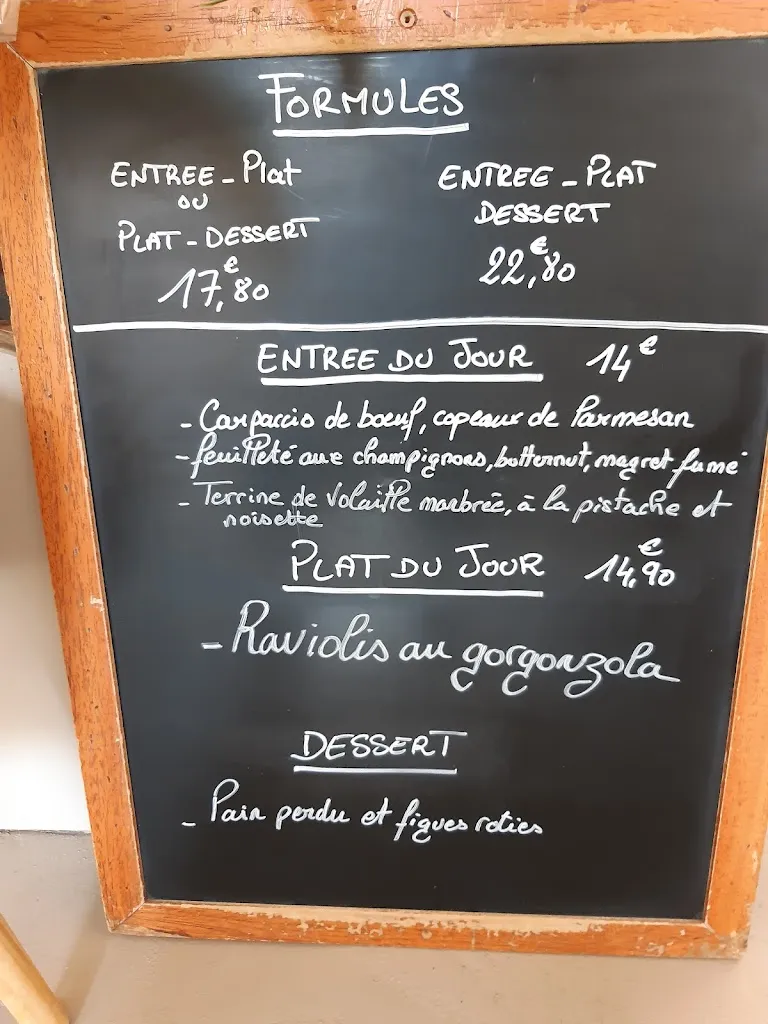 FORMULES
ENTREE - Plat
OU
PLAT - DESSERT
17,80 €
ENTREE - PLAT
DESSERT
22,80 €
ENTREE DU JOUR 14 €
- Carpaccio de boeuf, copeaux de Parmesan
- feuilleté aux champignons, butternut, magret fumé
- Terrine de Volaille marbrée, à la pistache et
noisette
PLAT DU JOUR 14,90 €
- Raviolis au gorgonzola
DESSERT
- Pain perdu et figues roties